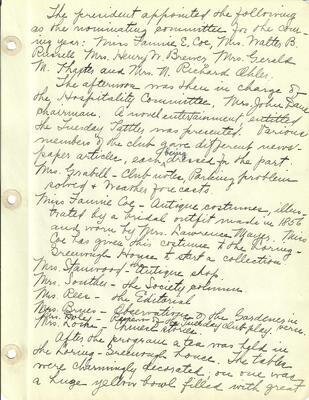 The president appointed the following
as the nominating committee for the com-
ing year: Miss Fannie E. Coe, Mrs. Walter B.
Russell, Mrs. Henry W. Brewer, Mrs. Gerald
M. and Mrs. M. Richard
The afternoon was then in charge of
the Hospitality Committee, Mrs. John
chairman. A novel entertainment, entitled
the Tuesday Tattler was presented. Various
member of the club gave different news-
paper article, each being dressed for the part.
Mrs. Grabill - Club notes, Parking problem
solved & Weather forecasts.
Miss Fannie Coe - Antique costumes, illus-
trated by a bridal outfit made in 1856
and worn by Mrs. Lawrence Mayo. Miss
Coe has given this costume to the Loring-
Greenough House to start a collection
Mrs. Stanwood - the Antique shop.
Mrs. Souther - the Society column
Mrs. Rees - the Editorial
Mrs. - Observations of the Gardener in
Mrs. - Review of Tuesday Club play. verse.
Mrs. Locke - Church stories.
After the program a tea was held in
the Loring-Greenough house. The tables
were charmingly decorated, on one was
a huge yellow bowl filled with great